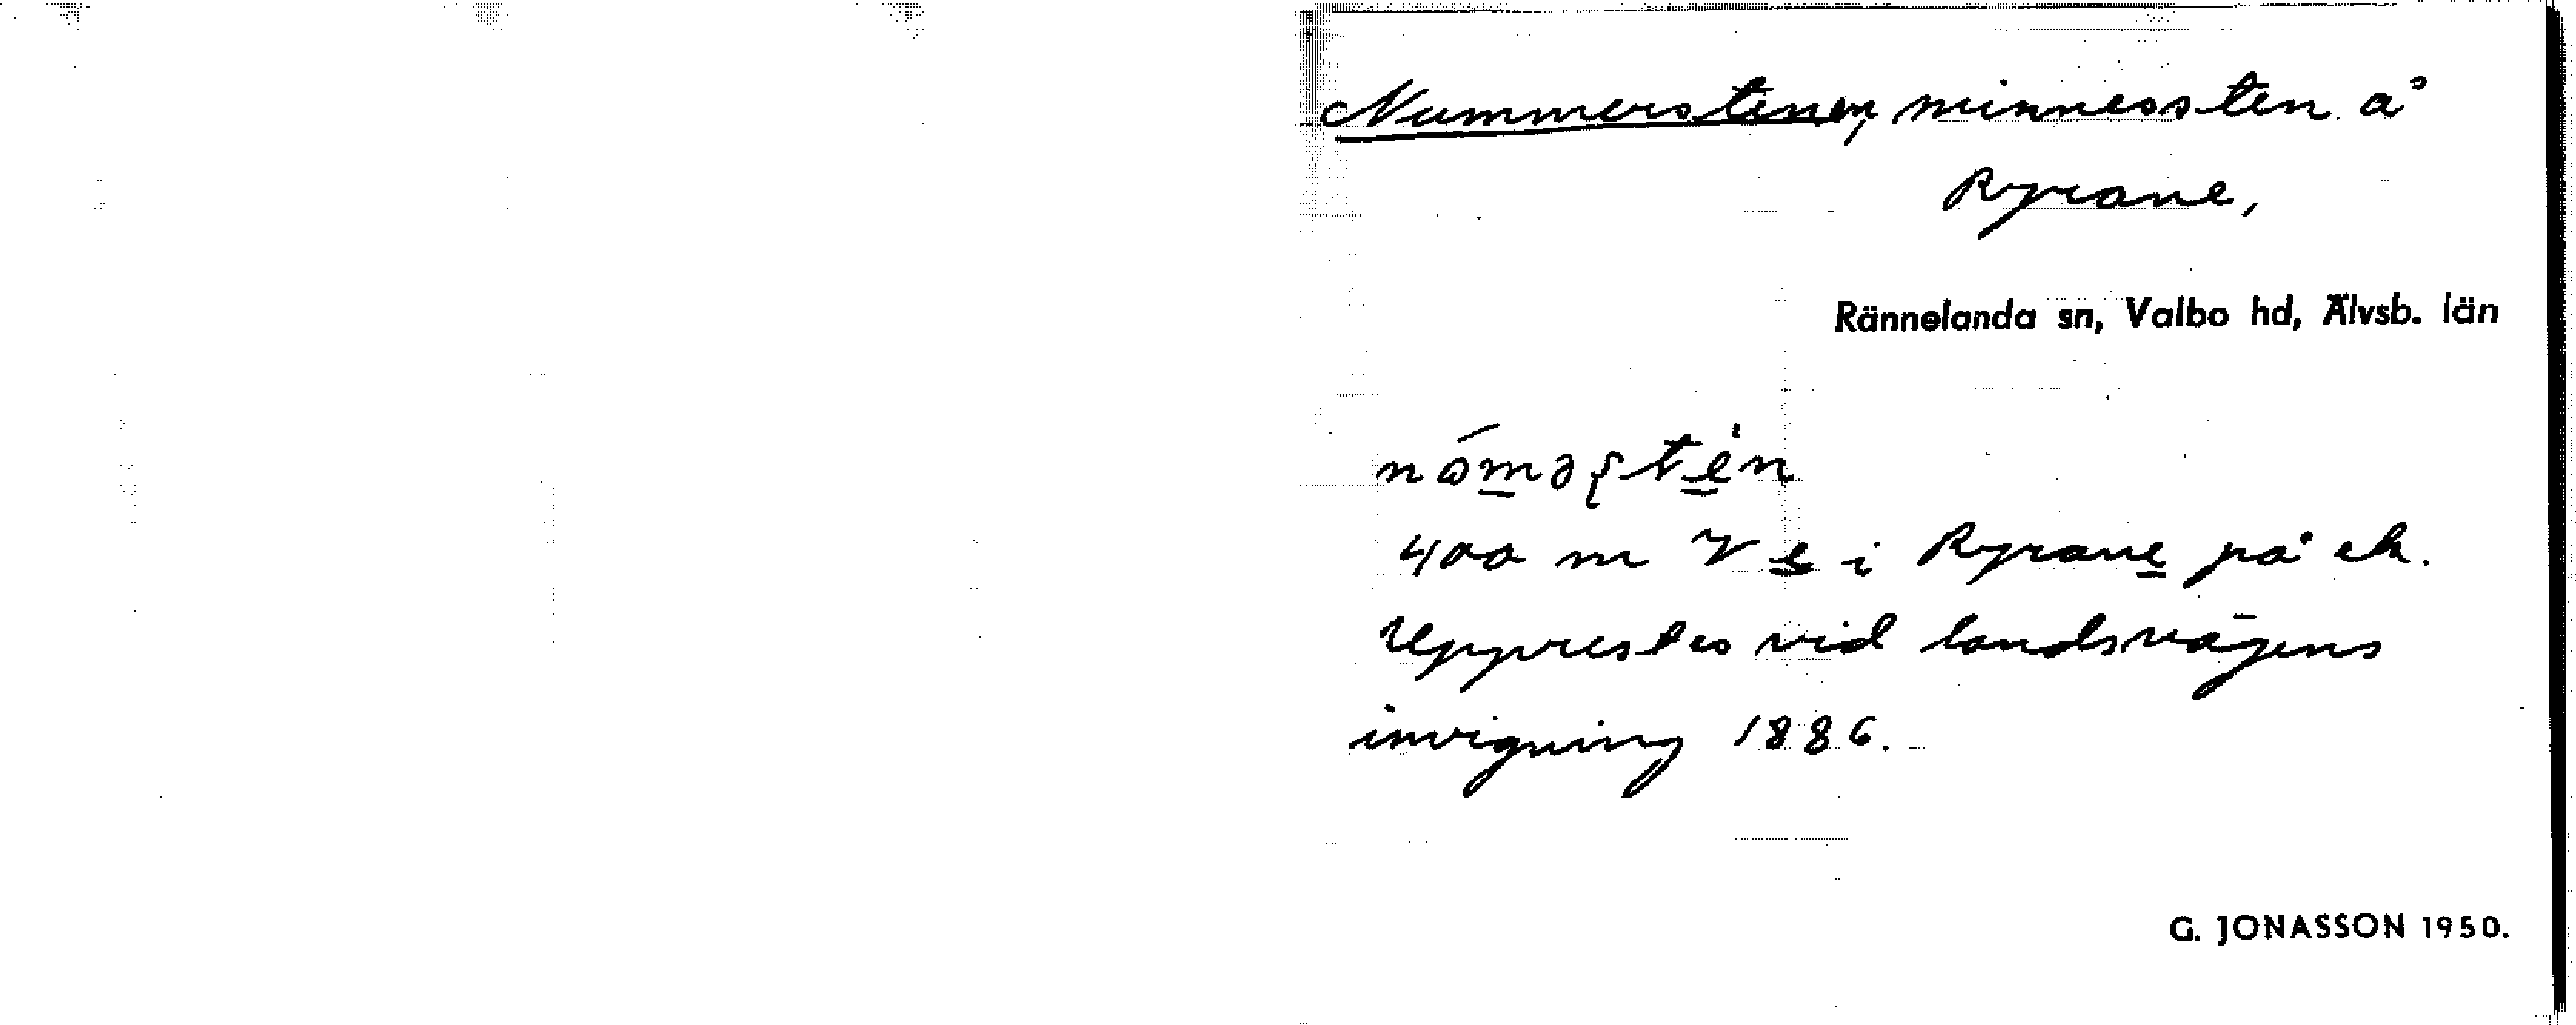 Nummerstenen, minnessten å
Ryrane,
Rännelanda sn, Valbo hd, Älvsb. län
400 m V e i Ryrane på ek.
Upprestes vid landsvägens
invigning 1886.
G. JONASSON 1950.